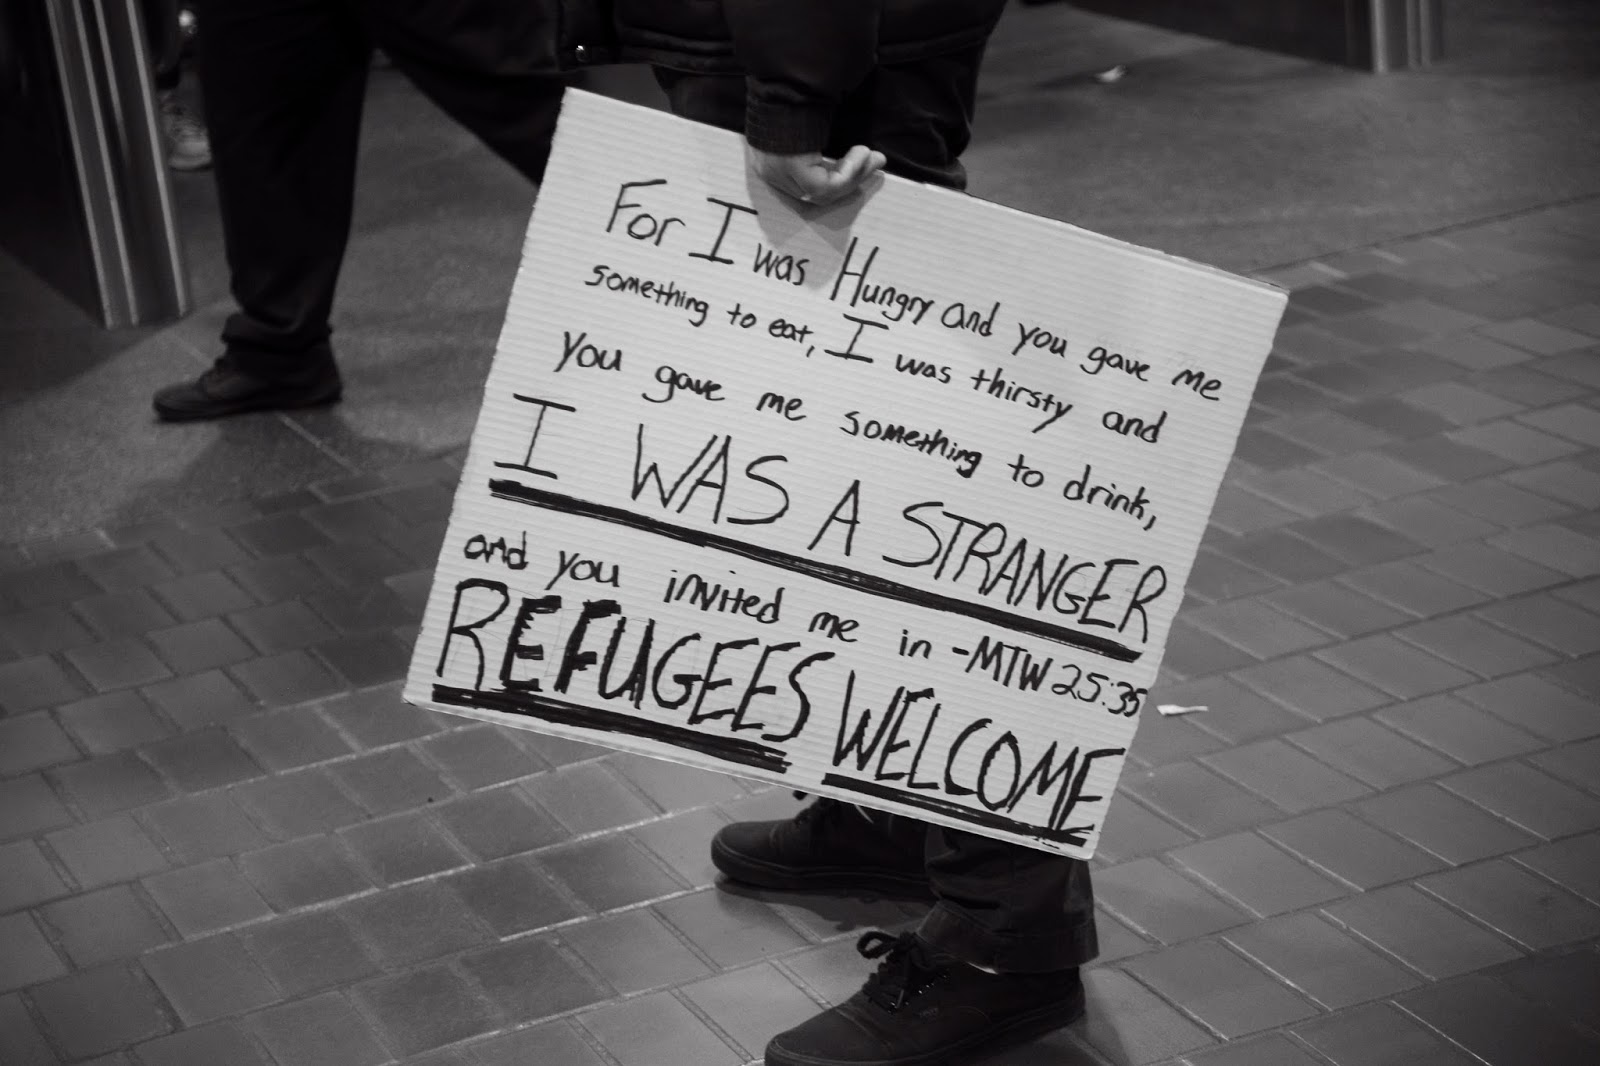 For I was Hungry and you gave me
something to eat, I was thirsty and
you gave me something to drink,
I WAS A STRANGER
and you invited me in -MTW 25:35
REFUGEES WELCOME